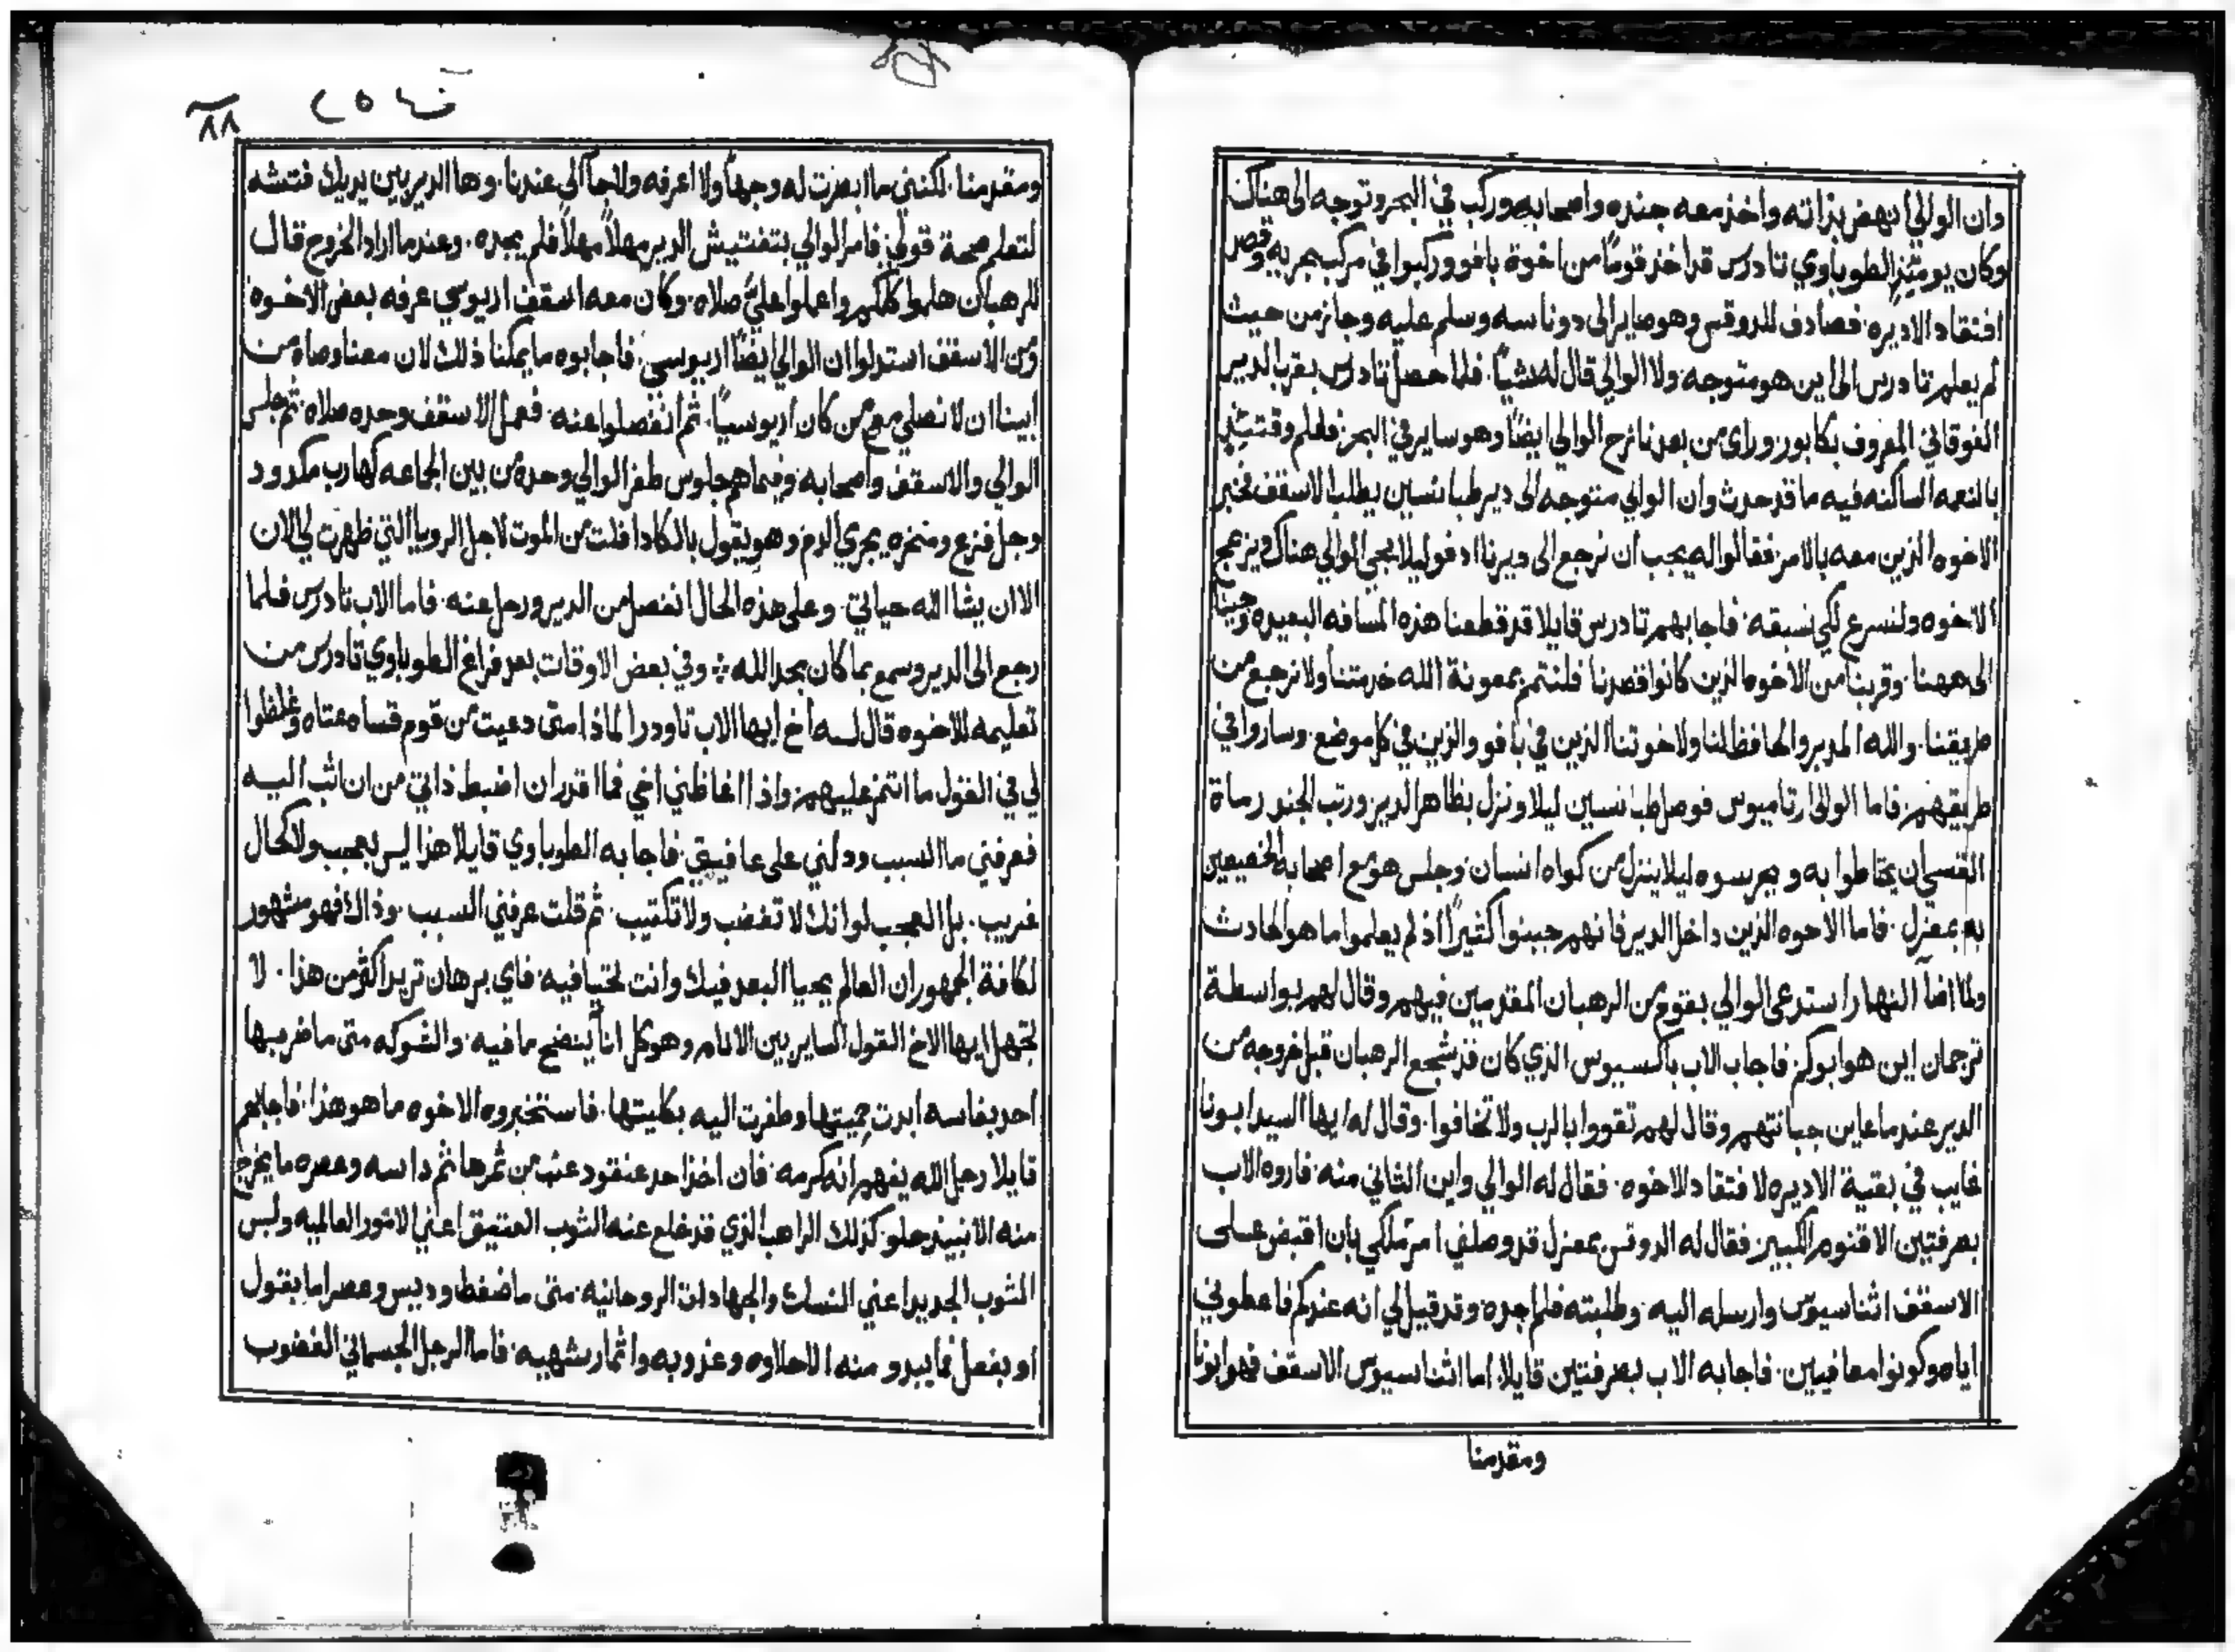 وان الوالي انهض بذاته واخذ معه جنده واصحابه وركب في البحر وتوجه الى هناك
وكان يوميذ الطوباوي تادرس قد اخذ قوما من اخوة بافو وركبوا في مركب بحريه وقصد
افتقاد الاديره فصادف للدوقس وهو صاير الى دوناسه وسلم عليه وجاز من حيث
لم يعلم تادرس الى اين هو متوجه ولا الوالي قال له شيا فلما حصل تادرس بقرب الدير
الفوقاني المعروف بكابور وراى من بعد نازح الوالي ايضا وهو ساير في البحر فعلم وقتيذ
بالنعمه الساكنه فيه ما قد حدث وان الوالي متوجه الى دير طبانسين يطلب الاسقف فخبر
الاخوه الذين معه بالامر فقالوا له يجب ان نرجع الى ديرنا ادفو ليلا يجي الوالي هناك ويزعج
الاخوه ولنسرع لكي نسبقه فاجابهم تادرس قايلا قد قطعنا هذه المسافه البعيده وجينا
الى ههنا وقربنا من الاخوه الذين كانوا قصدنا فلنتم بمعونة الله خدمتنا ولا نرجع من
طريقنا والله المدبر والحافظ لنا ولاخوتنا الذين في بافو والذين في كل موضع وساروا في
طريقهم فاما الوالي ارتاميوس فوصل طبانسين ليلا ونزل بظاهر الدير ورتب الجند رماة
القسي ان يحتاطوا به ويحرسوه ليلا ينزل من كواه انسان وجلس هو مع اصحابه الخصيصين
به بمعزل فاما الاخوه الذين داخل الدير فانهم جبنوا كثيرا اذ لم يعلموا ما هو الحادث
ولما اضا النهار استدعى الوالي بقوم من الرهبان المقدمين فيهم وقال لهم بواسطة
ترجمان اين هو ابوكم فاجاب الاب باكسيوس الذي كان قد شجع الرهبان قبل خروجه من
الدير عند ما عاين جبانتهم وقال لهم تقووا بالرب ولا تخافوا وقال له ايها السيد ابونا
غايب في بقية الاديره لافتقاد الاخوه فقال له الوالي واين الثاني منه فاروه الاب
بصرفتين الاقنوم الكبير فقال له الدوقس بمعزل قد وصلني امر ملكي بان اقبض على
الاسقف اثناسيوس وارسله اليه وطلبته فلم اجده وقد قيل لي انه عندكم فاعطوني
اياه وكونوا معافيين فاجابه الاب بصرفتين قايلا اما اثناسيوس الاسقف فهو ابونا
ومقدمنا
٨٨
ومقدمنا لكنني ما ابصرت له وجها ولا اعرفه والتجا الى عندنا وها الدير بين يديك فتشه
لتعلم صحة قولي فامر الوالي بتفتيش الدير مهلا مهلا فلم يجده وعند ما اراد الخروج قال
للرهبان هلموا كلكم واعملوا علي صلاه وكان معه اسقف اريوسي عرفه بعض الاخوه
ومن الاسقف استدلوا ان الوالي ايضا اريوسي فاجابوه ما يمكنا ذلك لان معنا وصاه من
ابينا ان لا نصلي مع من كان اريوسيا ثم انفصلوا عنه فعمل الاسقف وحده صلاه ثم جلس
الوالي والاسقف واصحابه وفيما هم جلوس طفر الوالي وحده من بين الجماعه كهارب مكدود
وجل فزع ومنخره يجري الدم وهو يقول بالكاد افلت من الموت لاجل الرويا التي ظهرت لي الان
الا ان يشا الله حياتي وعلى هذه الحال انفصل من الدير ورحل عنه فاما الاب تادرس فلما
رجع الى الدير وسمع بما كان مجد الله وفي بعض الاوقات بعد فراغ الطوباوي تادرس من
تعليمه للاخوه قال له اخ ايها الاب تاودرا لماذا متى دعيت من قوم قساه عتاه وغلظوا
لي في القول ما انتم عليهم واذا اغاظني اخي فما اقدر ان اضبط ذاتي من ان اثب اليه
فعرفني ما السبب ودلني على عافيتي فاجابه الطوباوي قايلا هذا ليس بعجب ولا كحال
غريب بل العجب لو انك لا تغضب ولا تكتيب ثم قلت عرفني السبب وذاك فهو مشهور
لكافة الجمهور ان العالم يحيا البعد فيك وانت تحتيا فيه فاي برهان تريد اكثر من هذا لا
تجهل ايها الاخ القول الساير بين الانام وهو كل انا ينضح ما فيه والشوكه متى ما ضربها
احد بفاسه ابدت حميتها وطفرت اليه بكليتها فاستخبروه الاخوه ما هو هذا فاجابهم
قايلا رجل الله يفهم انه كرمه فان اخذ احد عنقود عنب من ثمرها ثم داسه وعصره ما يخرج
منه الا نبيذ حلو كذلك الراهب الذي قد خلع عنه الثوب العتيق اعني الامور العالميه ولبس
الثوب الجديد اعني النسك والجهادات الروحانيه متى ما ضغط وديس وعصر اما بقول
او بفعل فما يبدو منه الا حلاوه وعذوبه واثمار شهيه فاما الرجل الجسماني الغضوب